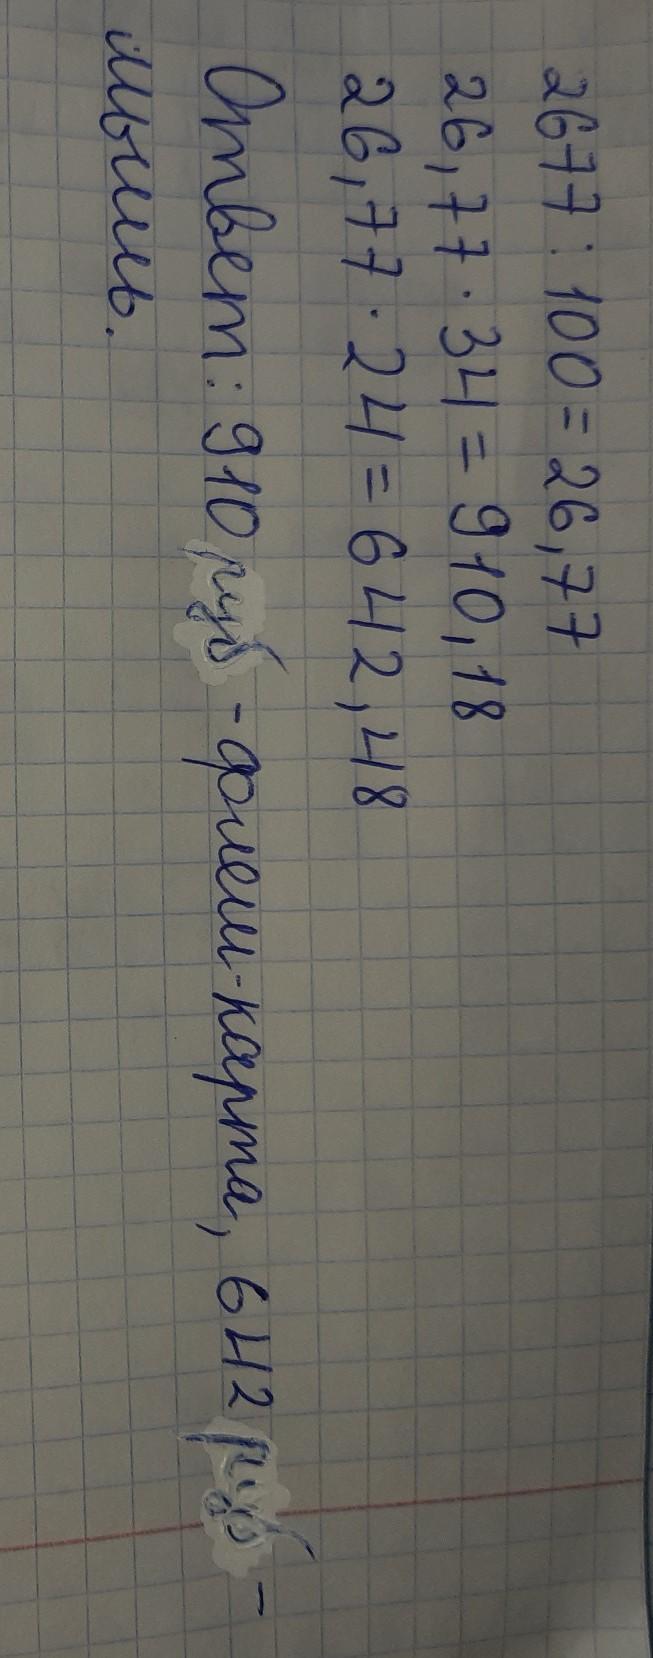 2677 : 100 = 26,77
26,77 · 34 = 910,18
26,77 · 24 = 642,48
Ответ: 910 руб - флеш-карта, 642 руб -
мышь.